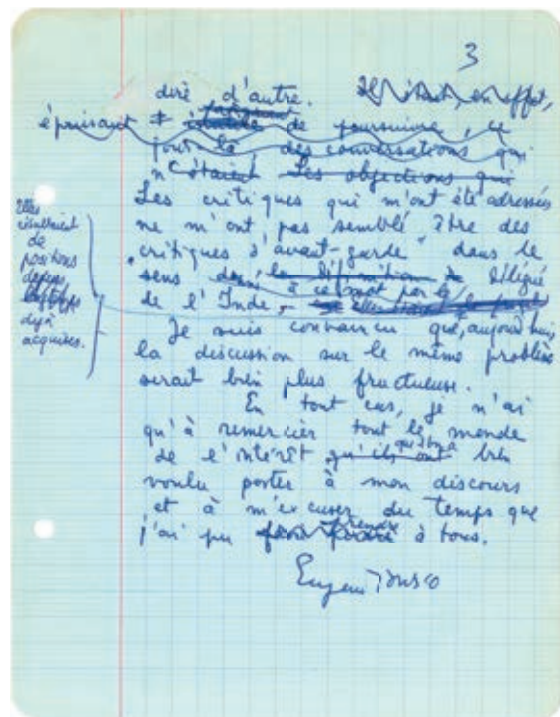 3
dire d'autre. Il était, en effet,
épuisant de poursuivre, ce
jour là des conversations qui
n'étaient Les objections qui
Les critiques qui m'ont été adressés
ne m'ont pas semblé être des
"critiques d'avant-garde" dans le
sens donné à ce mot par le Délégué
de l'Inde,
Elles
résultaient
de
positions
depuis
longtemps
déjà
acquises.
Je suis convaincu que, aujourd'hui,
la discussion sur le même problème
serait bien plus fructueuse.
En tout cas, je n'ai
qu'à remercier tout le monde
de l'intérêt qu'ils ont qu'on a bien
voulu porter à mon discours
et à m'excuser du temps que
j'ai pu prendre à tous.
Eugène Ionesco